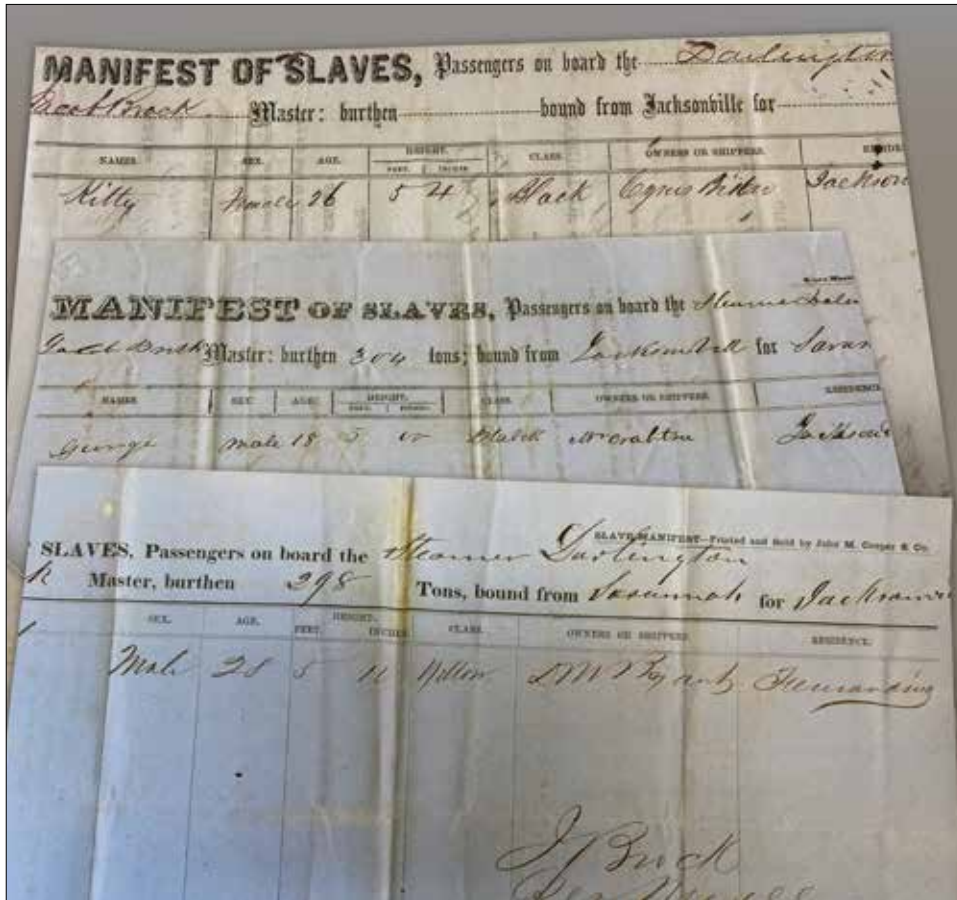 MANIFEST OF SLAVES, Passengers on board the Darlington
Jacob Brock Master: burthen bound from Jacksonville for
NAMES. SEX. AGE. HEIGHT. CLASS. OWNERS OR SHIPPERS. RESIDE
FEET. INCHES.
Kitty Female 26 5 4 Black Cyrus Jackson
MANIFEST OF SLAVES, Passengers on board the Steamer
Jacob Brock Master: burthen 304 tons; bound from Jacksonville for Savan
NAMES SEX AGE HEIGHT. CLASS OWNERS OR SHIPPERS RESIDENCE
FEET. INCHES.
George male 18 5 Black Jackson
SLAVE MANIFEST—Printed and Sold by John M. Cooper & Co.
SLAVES, Passengers on board the Steamer Darlington
k Master, burthen 298 Tons, bound from Savannah for Jacksonvi
SEX. AGE. HEIGHT. CLASS. OWNERS OR SHIPPERS. RESIDENCE.
FEET. INCHES.
Male 28 5 11 Yellow Fernandina
J Brock